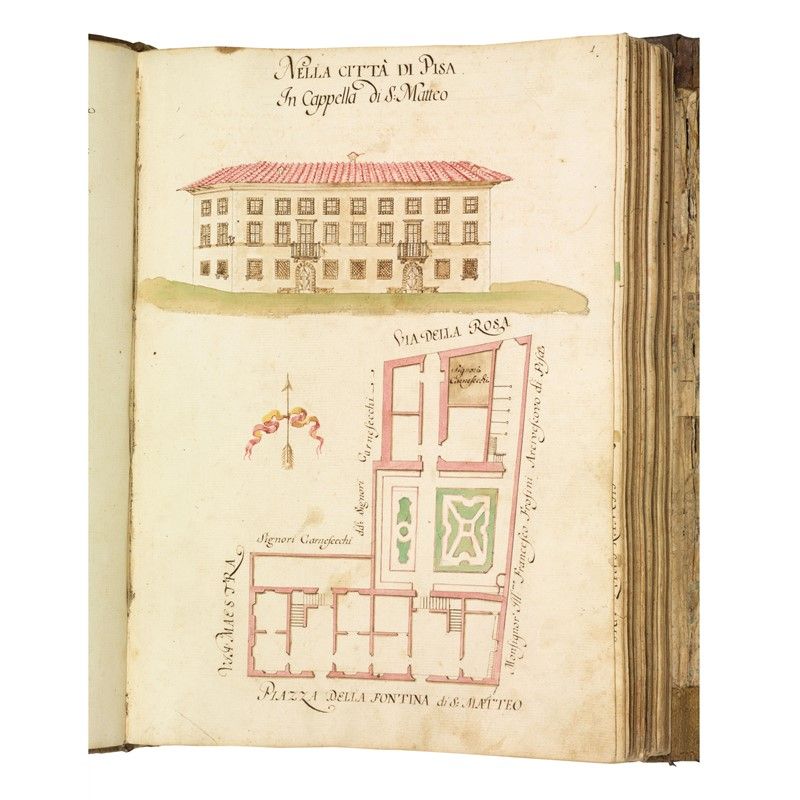 1.
NELLA CITTÀ DI PISA.
In Cappella di S. Matteo
VIA DELLA ROSA
Signori
Carnesecchi
dd. Signori Carnesecchi
Monsignor Francesco Frosini Arcivescovo di Pisa
Signori Carnesecchi
VIA MAESTRA
PIAZZA DELLA FONTINA di S. MATTEO